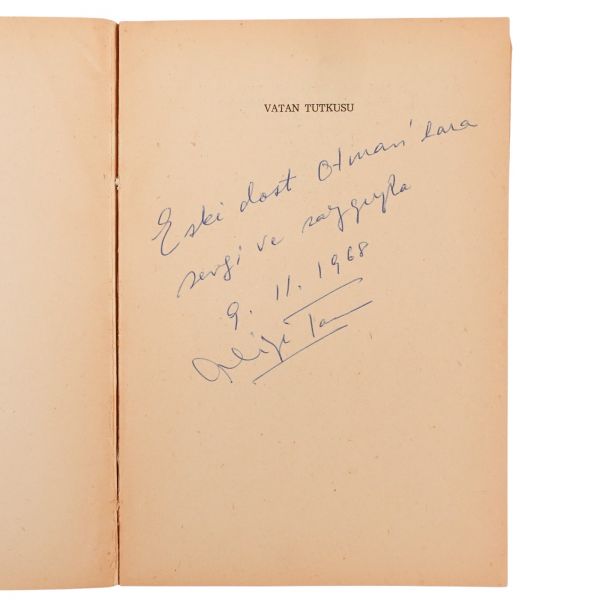 VATAN TUTKUSU
Eski dost Otman'lara
sevgi ve saygıyla
9. 11. 1968